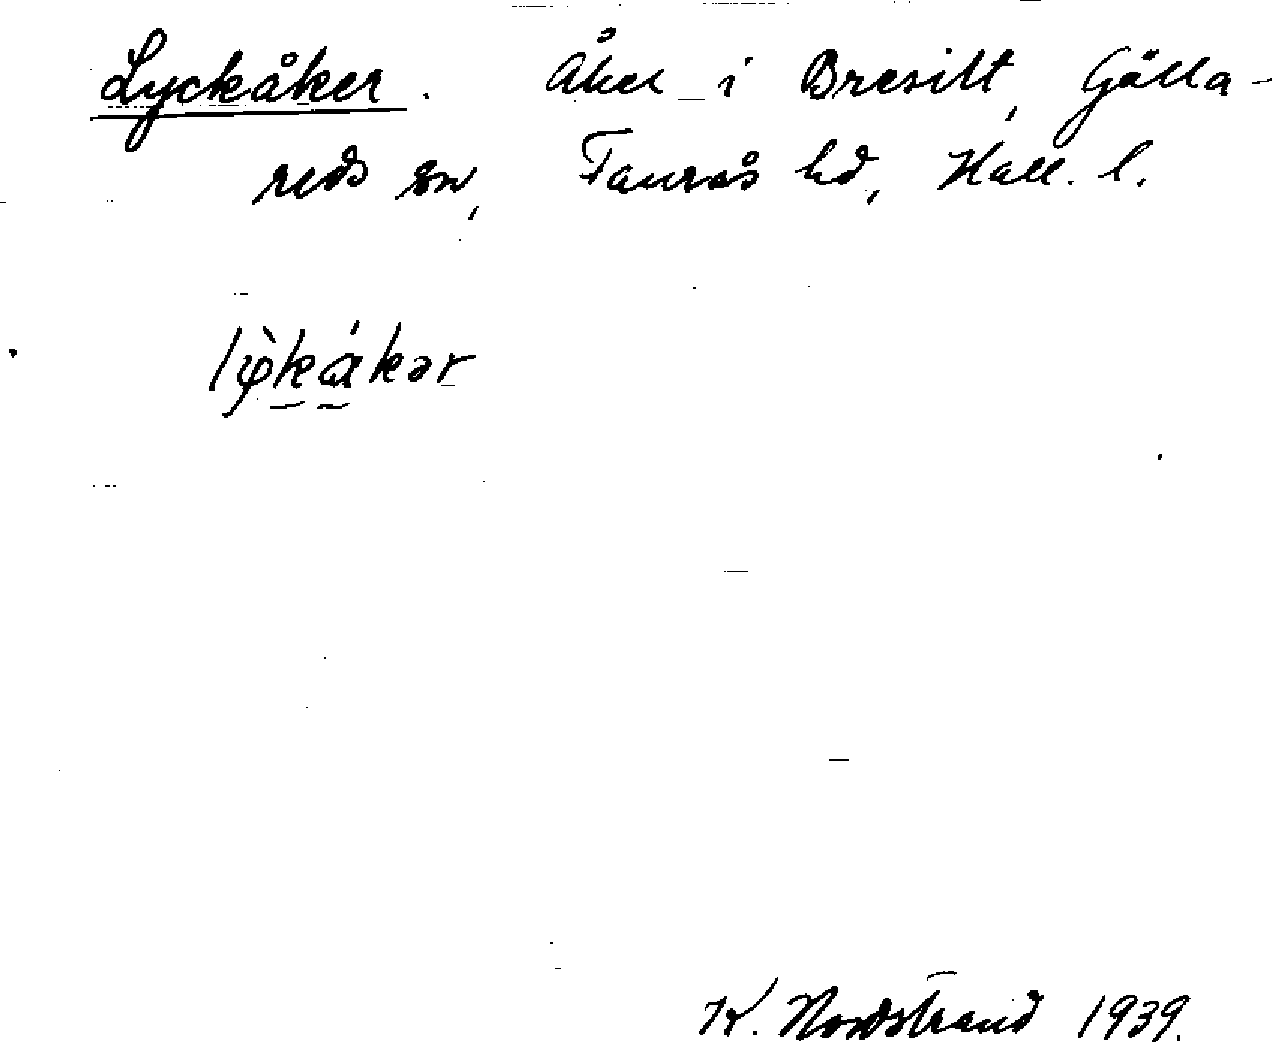 Lyckåker. Åker i Bresilt, Gälla-
reds sn, Faurås hd, Hall. l.
lỳkákər
K. Nordstrand 1939.